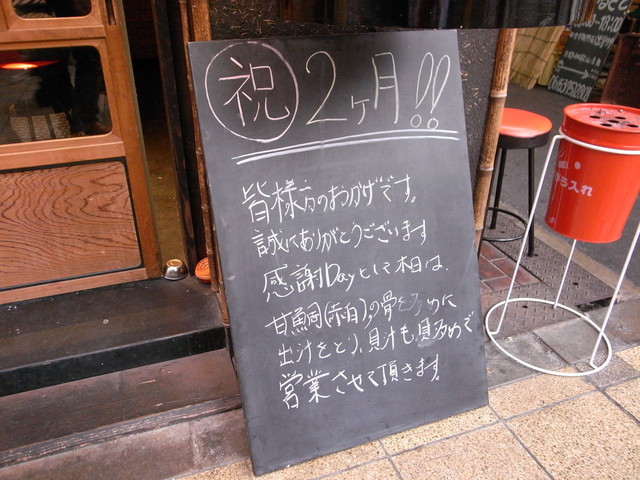 祝 2ヶ月!!
皆様方のおかげです。
誠にありがとうございます
感謝Dayとして本日は、
甘鯛(赤白)の骨を多めに
出汁をとり、貝汁も、貝多めで
営業させて頂きます。
入れ